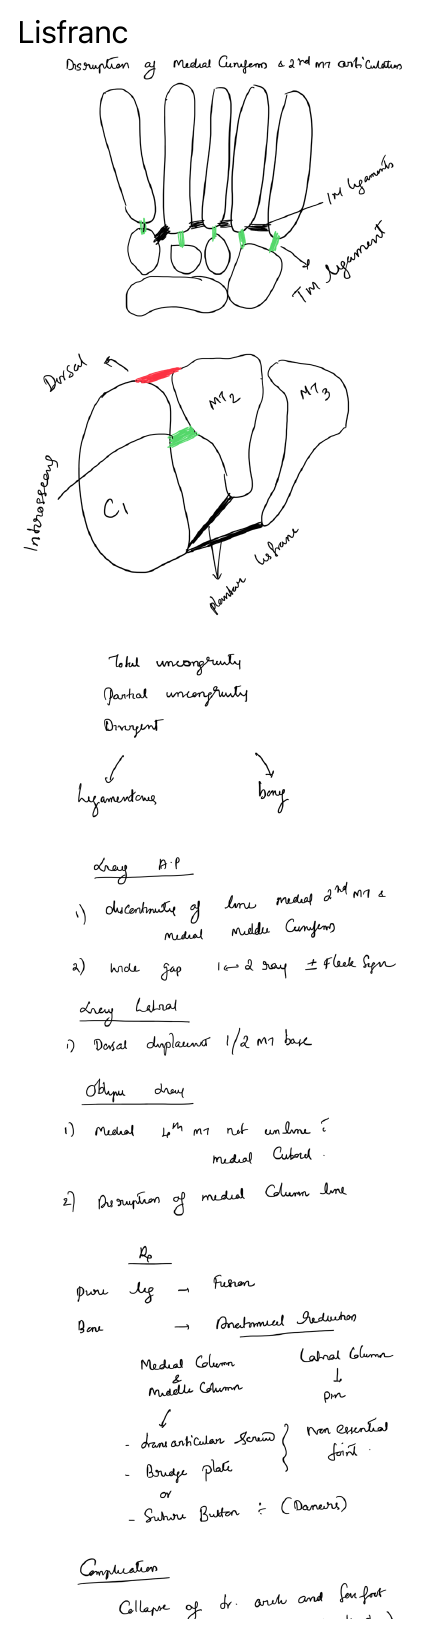 Lisfranc
Disruption of Medial Cuneiform & 2nd MT articulation
IM ligaments
TM ligament
Dorsal
MT2
MT3
Interosseous
C1
plantar lisfranc
Total uncongruity
Partial uncongruity
Divergent
Ligamentous
bony
Xray A.P
1) discontinuity of line medial 2nd MT &
medial middle Cuneiform
2) wide gap 1 ↔ 2 ray ± Fleck Sign
Xray Lateral
1) Dorsal displacement 1/2 MT base
Oblique Xray
1) Medial 4th MT not in line c̄
medial Cuboid.
2) Disruption of medial Column line
Rx
pure lig → Fusion
Bone → Anatomical Reduction
Medial Column
&
Middle Column
Lateral Column
↓
pin
- transarticular Screw
- Bridge plate
or
- Suture Button ÷ (Dancers)
Non essential
joint.
Complication
Collapse of arch and forefoot